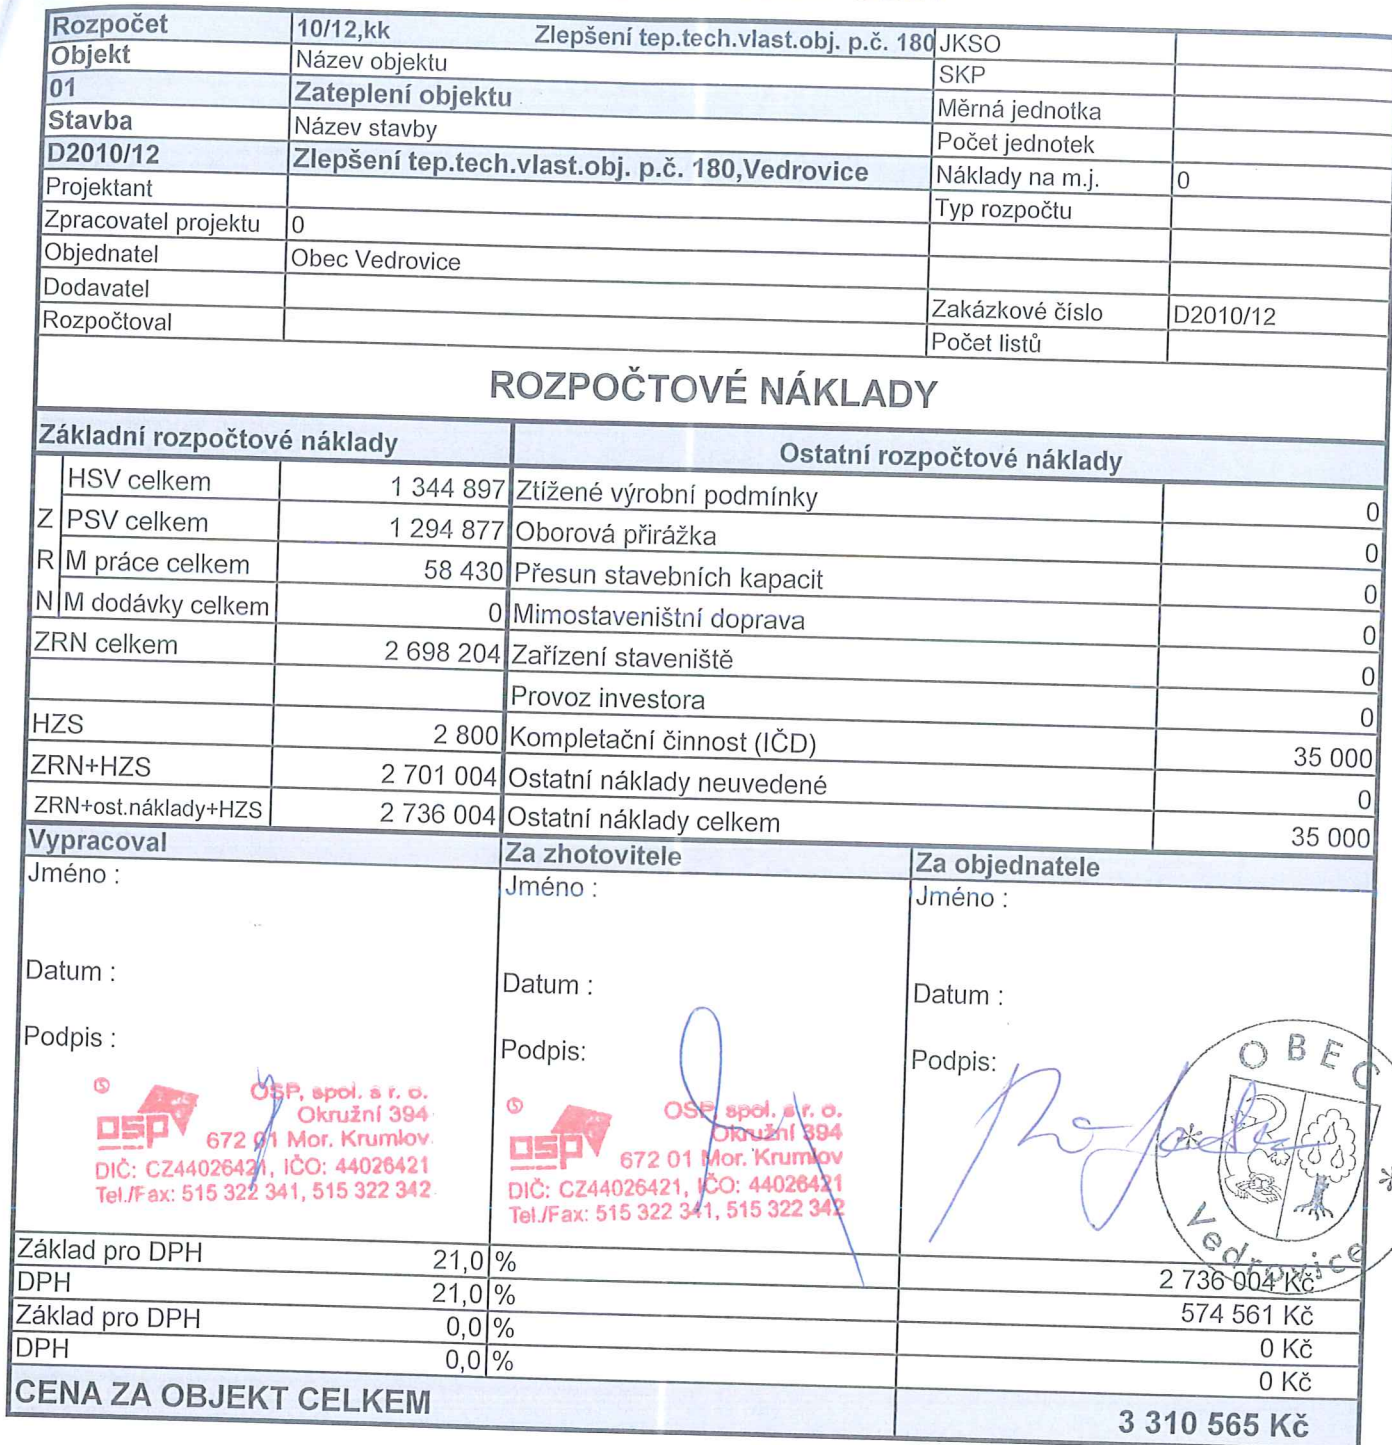 Rozpočet 10/12,kk Zlepšení tep.tech.vlast.obj. p.č. 180 JKSO
Objekt Název objektu SKP
01 Zateplení objektu Měrná jednotka
Stavba Název stavby Počet jednotek
D2010/12 Zlepšení tep.tech.vlast.obj. p.č. 180,Vedrovice Náklady na m.j. 0
Projektant Typ rozpočtu
Zpracovatel projektu 0
Objednatel Obec Vedrovice
Dodavatel Zakázkové číslo D2010/12
Rozpočtoval Počet listů
ROZPOČTOVÉ NÁKLADY
Základní rozpočtové náklady Ostatní rozpočtové náklady
HSV celkem 1 344 897 Ztížené výrobní podmínky 0
Z PSV celkem 1 294 877 Oborová přirážka 0
R M práce celkem 58 430 Přesun stavebních kapacit 0
N M dodávky celkem 0 Mimostaveništní doprava 0
ZRN celkem 2 698 204 Zařízení staveniště 0
Provoz investora 0
HZS 2 800 Kompletační činnost (IČD) 35 000
ZRN+HZS 2 701 004 Ostatní náklady neuvedené 0
ZRN+ost.náklady+HZS 2 736 004 Ostatní náklady celkem 35 000
Vypracoval Za zhotovitele Za objednatele
Jméno : Jméno : Jméno :
Datum : Datum : Datum :
Podpis : Podpis: Podpis:
osp OSP, spol. s r. o.
Okružní 394
672 01 Mor. Krumlov
DIČ: CZ44026421, IČO: 44026421
Tel./Fax: 515 322 341, 515 322 342
osp OSP, spol. s r. o.
Okružní 394
672 01 Mor. Krumlov
DIČ: CZ44026421, IČO: 44026421
Tel./Fax: 515 322 341, 515 322 342
OBEC
* *
Vedrovice
Základ pro DPH 21,0 % 2 736 004 Kč
DPH 21,0 % 574 561 Kč
Základ pro DPH 0,0 % 0 Kč
DPH 0,0 % 0 Kč
CENA ZA OBJEKT CELKEM 3 310 565 Kč